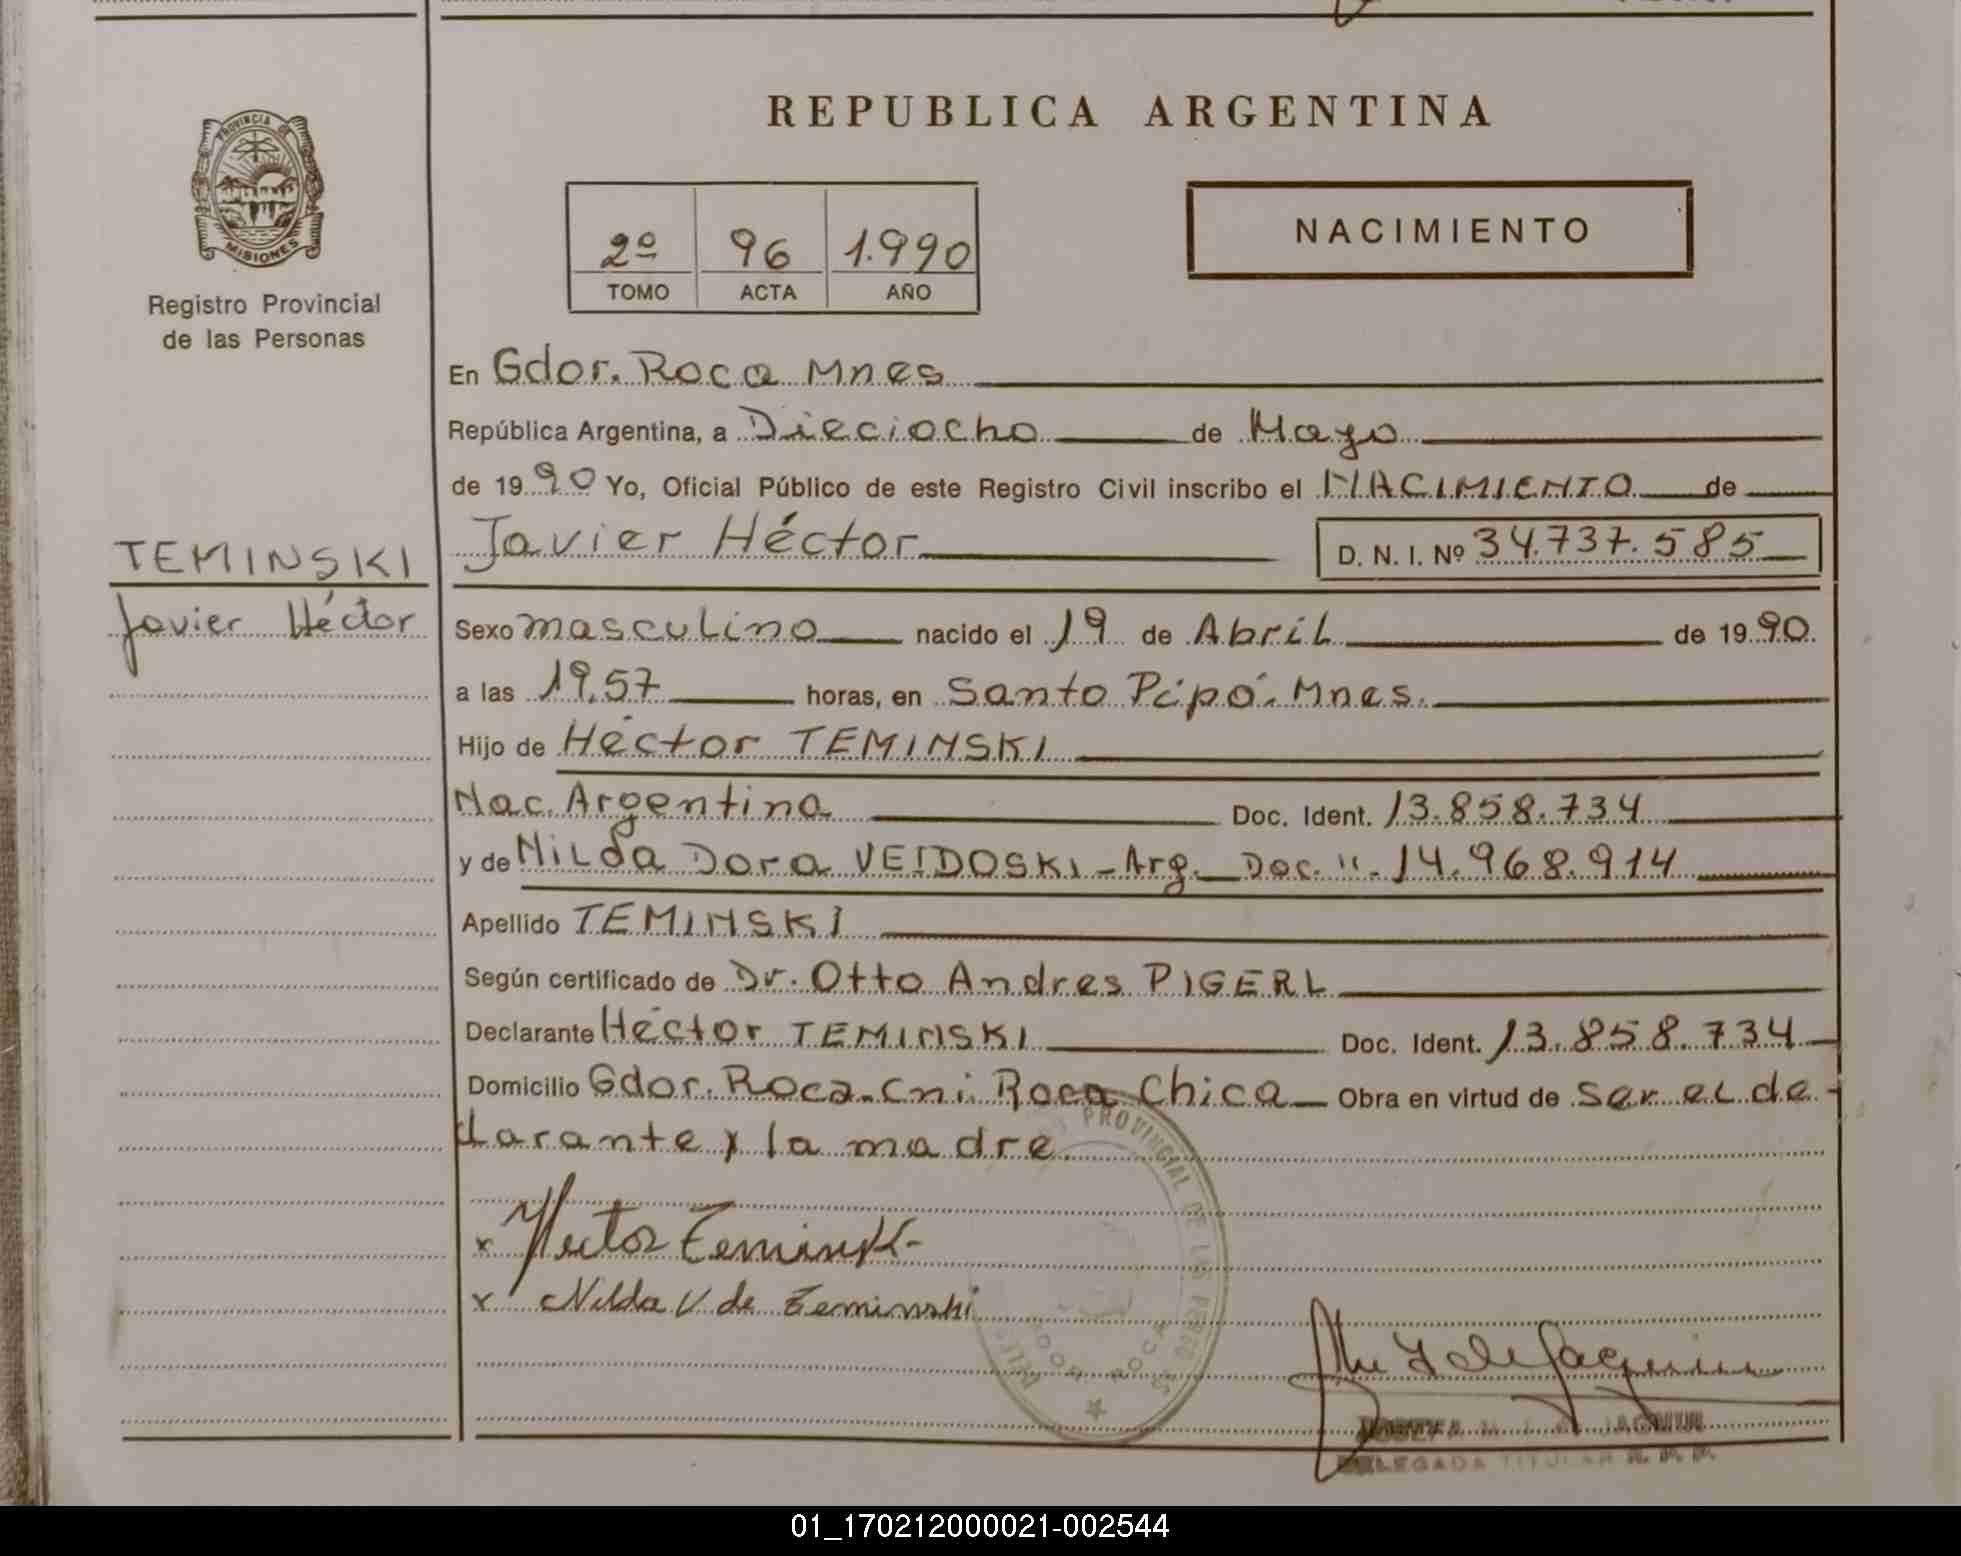 PROVINCIA DE
MISIONES
Registro Provincial
de las Personas
TEMINSKI
Javier Héctor
REPUBLICA ARGENTINA
2º 96 1.990
TOMO ACTA AÑO
NACIMIENTO
En Gdor. Roca Mnes
República Argentina, a Dieciocho de Mayo
de 1990 Yo, Oficial Público de este Registro Civil inscribo el NACIMIENTO de
Javier Héctor D. N. I. Nº 34.737.585
Sexo masculino nacido el 19 de Abril de 1990
a las 19.57 horas, en Santo Pipó. Mnes.
Hijo de Héctor TEMINSKI
Nac. Argentina Doc. Ident. 13.858.734
y de Nilda Dora VEIDOSKI - Arg. Doc. ". 14.968.914
Apellido TEMINSKI
Según certificado de Dr. Otto Andres PIGERL
Declarante Héctor TEMINSKI Doc. Ident. 13.858.734
Domicilio Gdor. Roca. Cni Roca Chica Obra en virtud de ser el de-
clarante y la madre.
PROVINCIAL DE LAS
ROCA
x Hector Teminski
x Nilda V de Teminski
JOSEFA M. JAQUIN
DELEGADA TITULAR R. P. P.
01_170212000021-002544